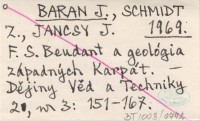 BARAN J., SCHMIDT
Z., JANCSY J. 1969.
F. S. Beudant a geológia
západných Karpát. —
Dějiny Věd a Techniky
2, No 3: 151-167.